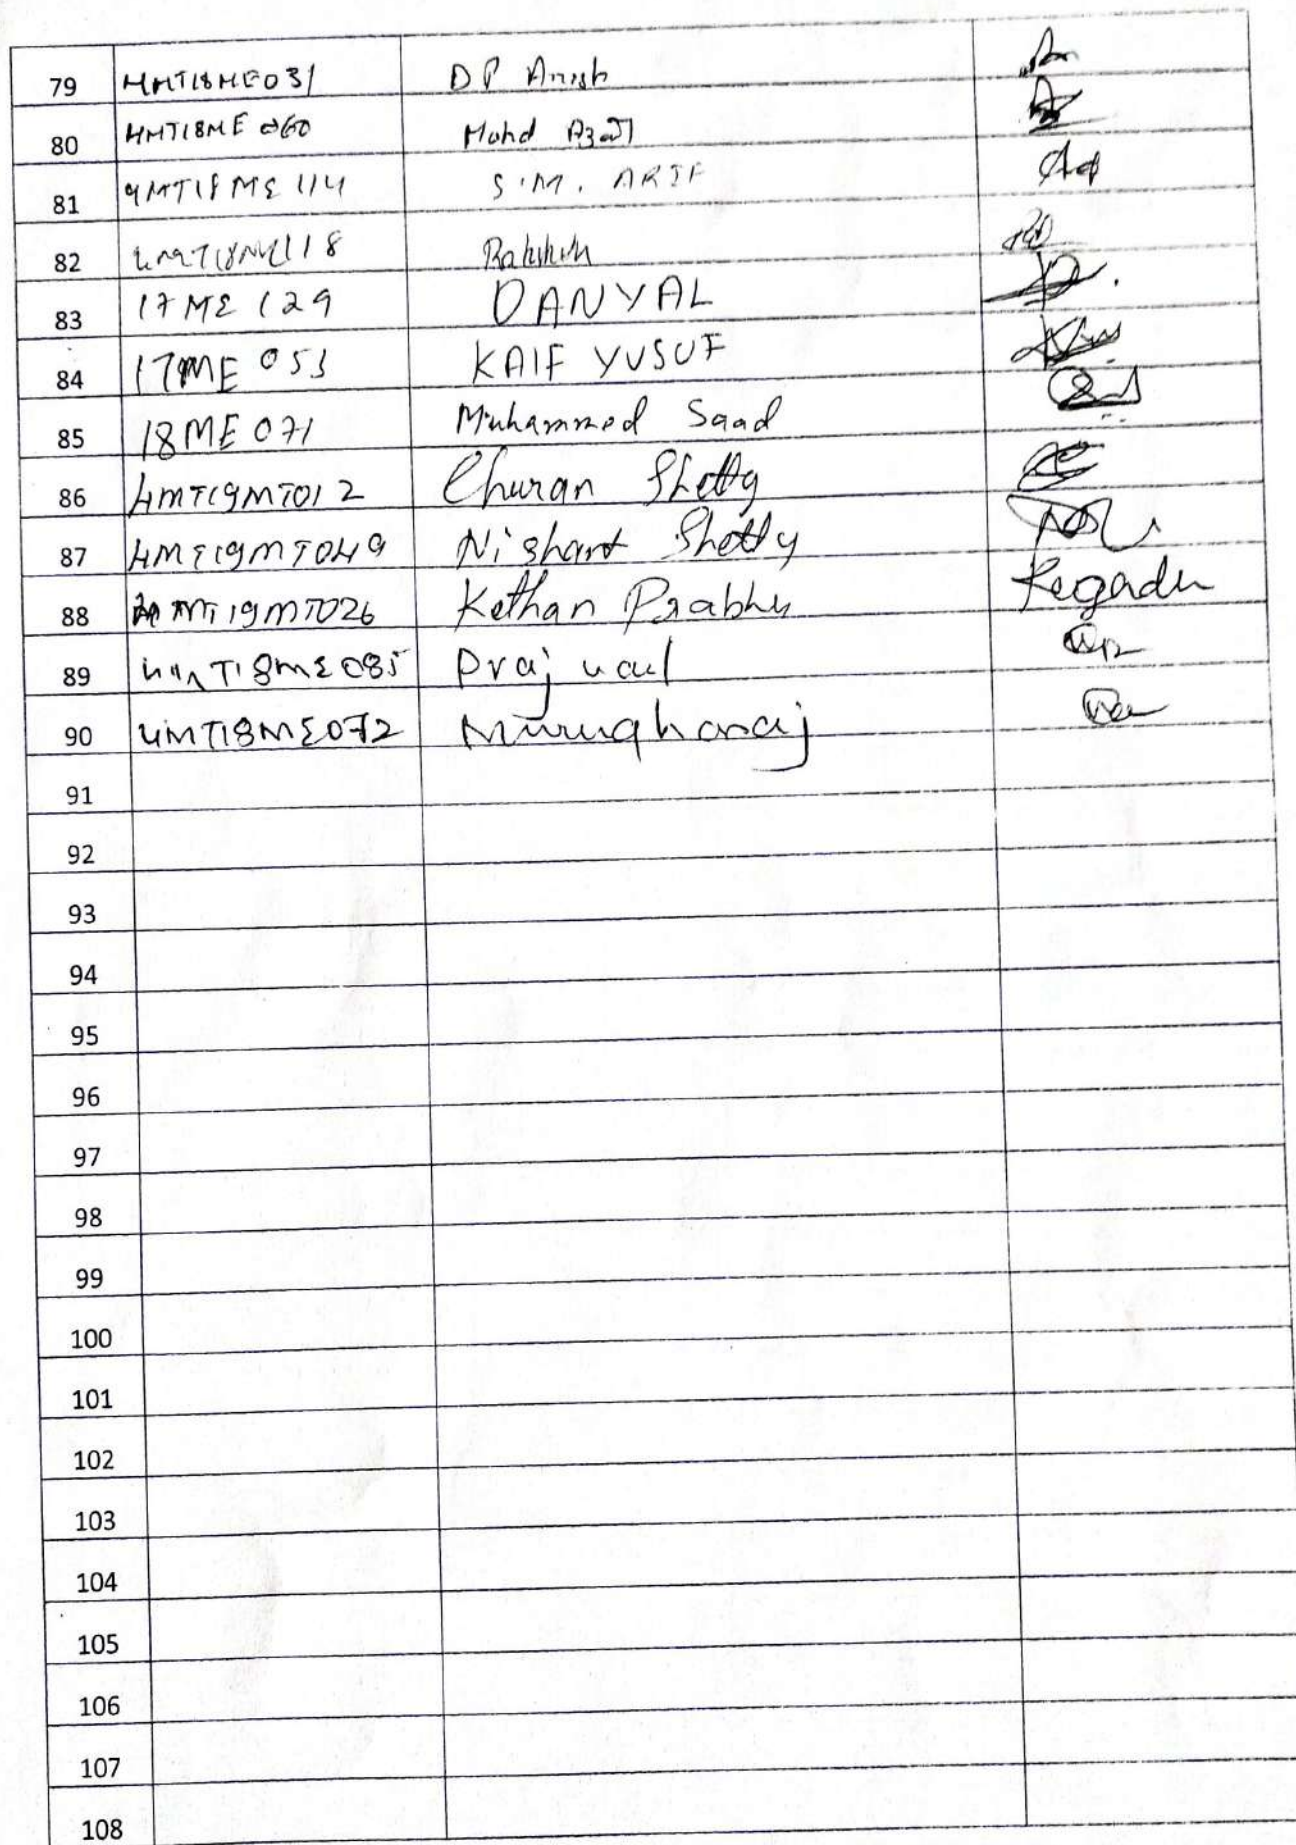 79 4MT18ME031 DP Anish
80 4MT18ME060 Mohd
81 4MT18ME114 S.M. ARIF
82 4MT18ME118
83 17ME129 DANYAL
84 17ME053 KAIF YUSUF
85 18ME071 Muhammed Saad
86 4MT19MT012 Churan Shetty
87 4MT19MT049 Nishant Shetty
88 MT19MT026 Kethan Prabhu
89 4MT18ME085 Prajwal
90 4MT18ME072
91
92
93
94
95
96
97
98
99
100
101
102
103
104
105
106
107
108